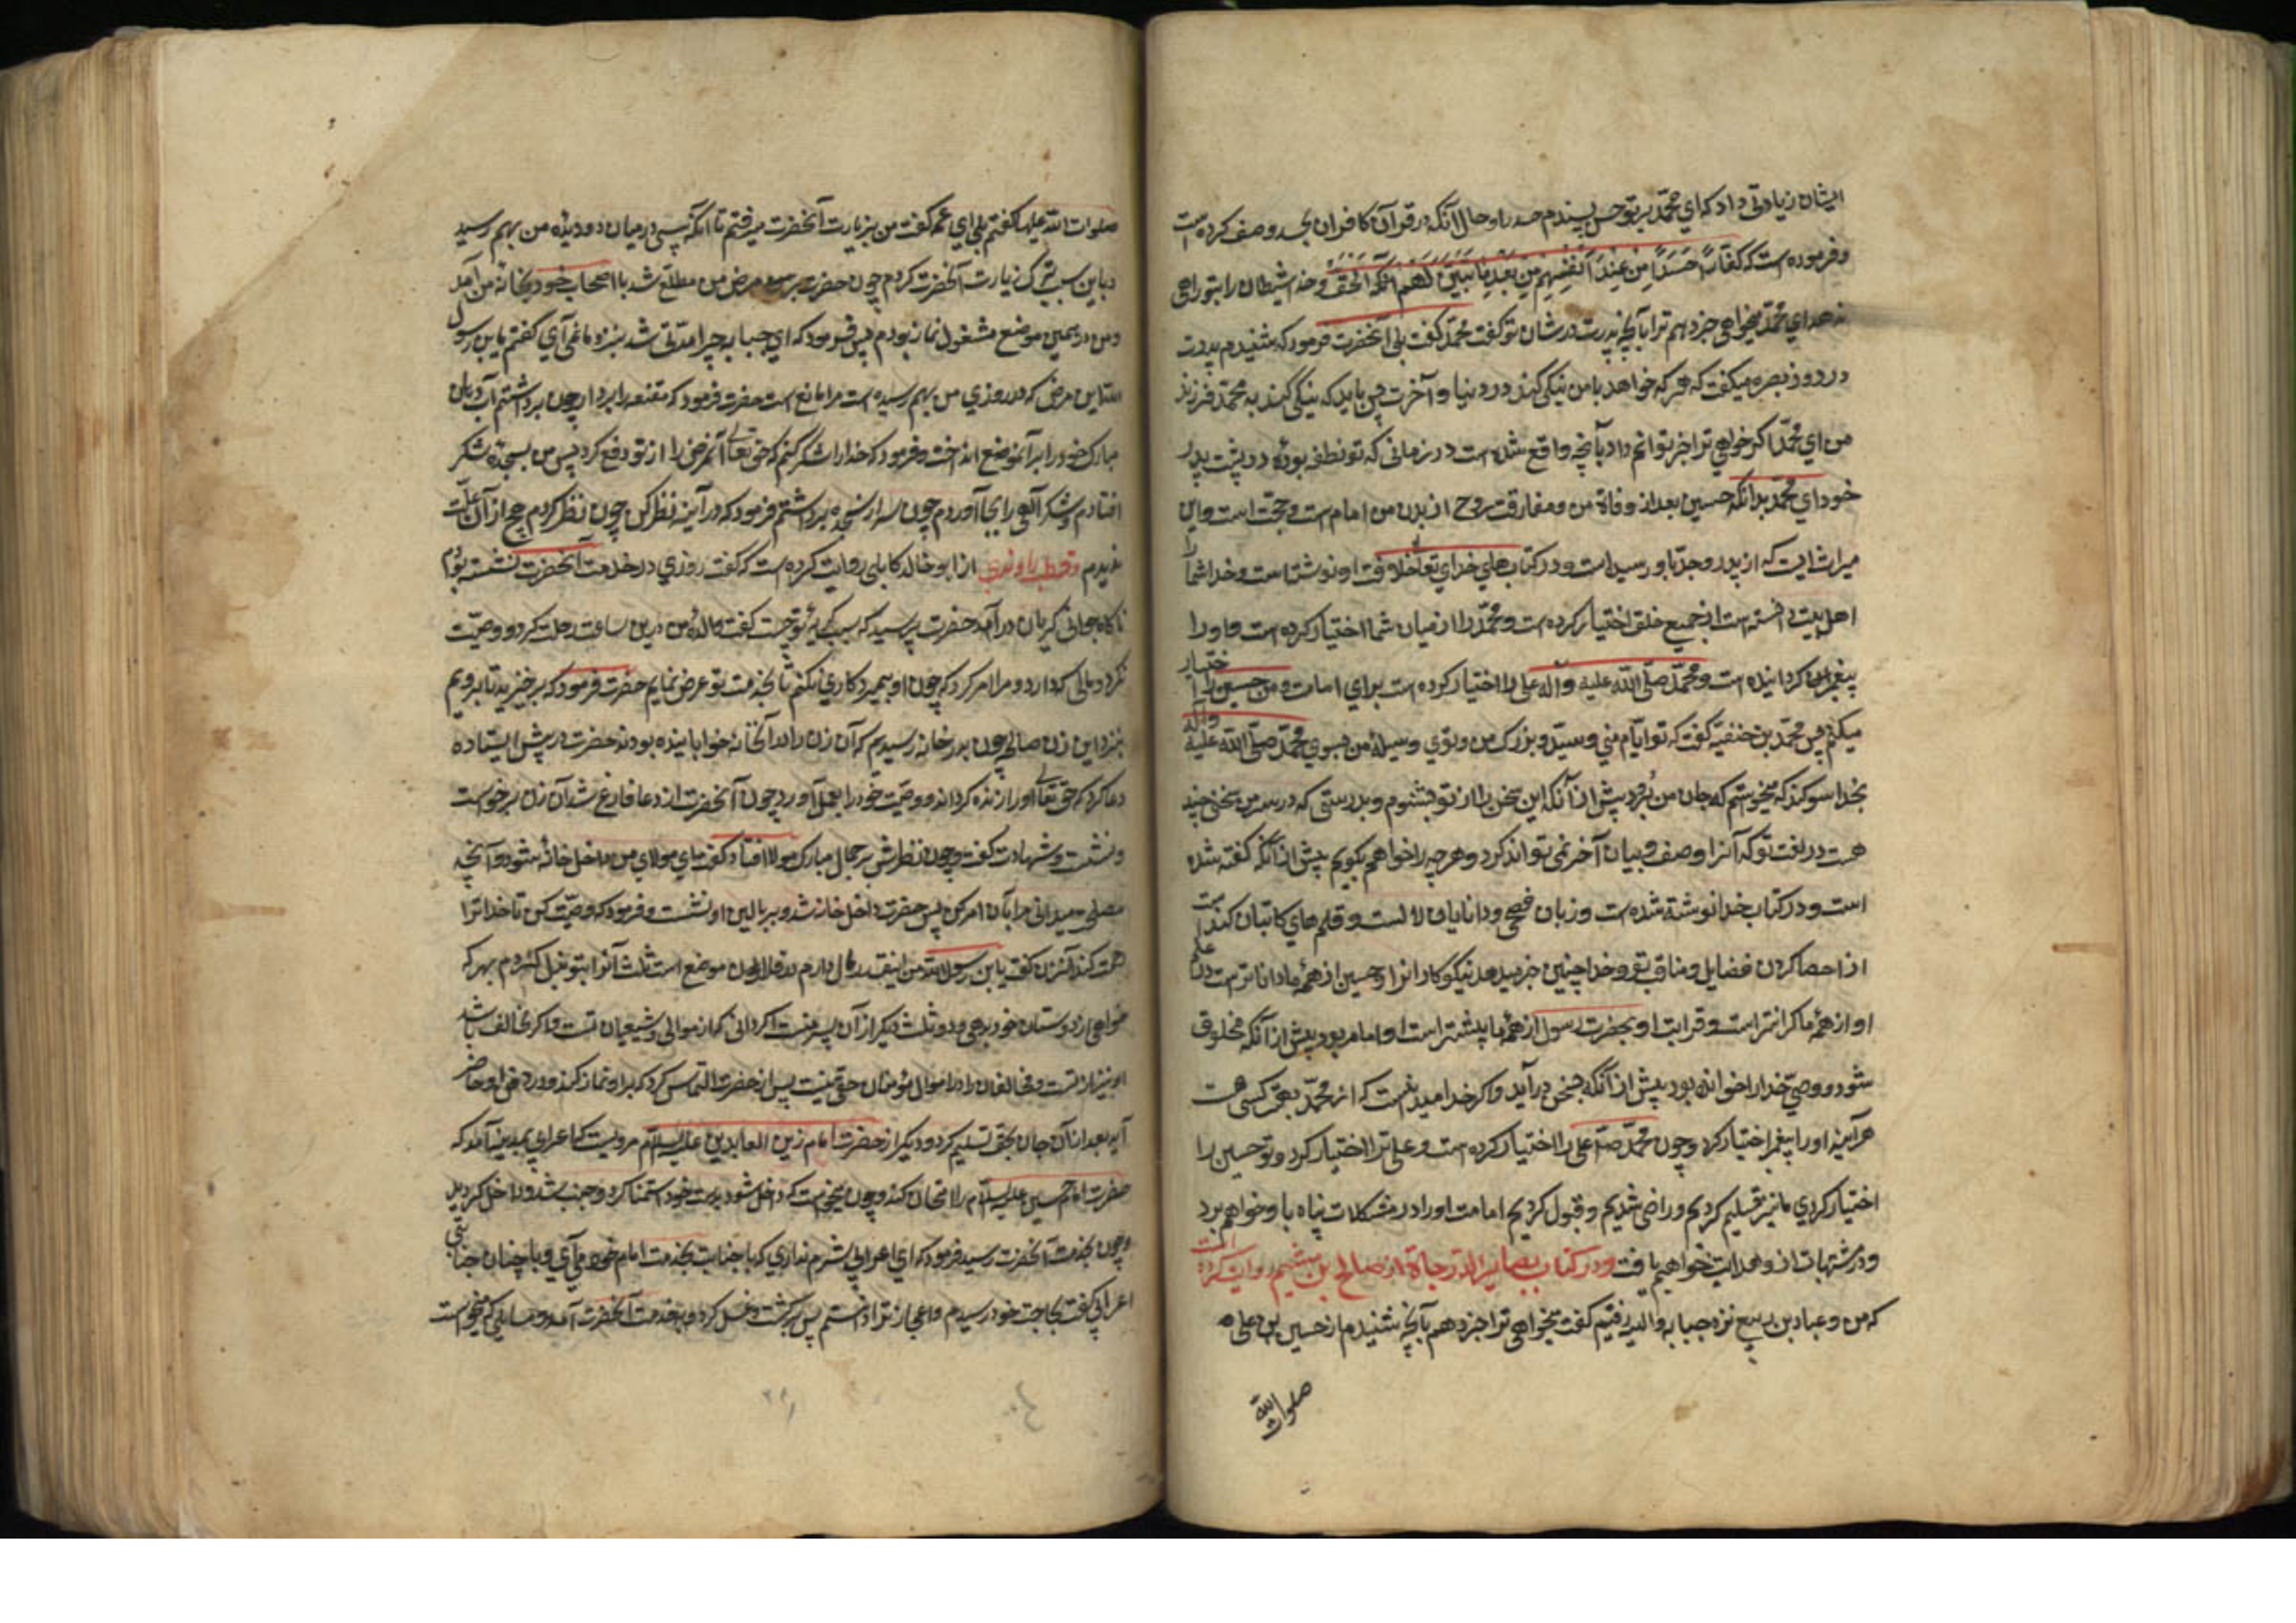 ایشان زیادتی داد که ای محمد بر تو حسد را و حال آنکه در قرآن کافران بحسد وصف کرده است
و فرموده است که کفارا حسدا من عند انفسهم من بعد ما تبین لهم الحق و خدا شیطان را بتو راهی
ندهد ای محمد میخواهی خبر دهم ترا بآنچه پدرت در شان تو گفت محمد گفت بلی آنحضرت فرمود که شنیدم پدرت
در روز بصره میگفت که هر که خواهد با من نیکی کند در دنیا و آخرت پس باید که نیکی کند به محمد فرزند
من ای محمد اگر خواهی ترا خبر توانم داد بآنچه واقع شده است در زمانی که تو نطفه بودهٔ در پشت پدر
خود ای محمد بدانکه حسین بعد از وفاة من و مفارقت روح از بدن من امام است و حجت است و این
میراث ایست که از پدر و جد باو رسیده است و در کتاب های خدای تعالی خلافت او نوشته است و خدا شما را
اهل بیت دانسته است از جمیع خلق اختیار کرده است و محمد را از میان شما اختیار کرده است و او را
پیغمبر گردانیده است و محمد صلی الله علیه و آله علی را اختیار کرده است برای امامت و من حسین را اختیار
میکنم پس محمد بن حنفیه گفت که تو امام منی و سید و بزرگ من و توی وسیلهٔ من بسوی محمد صلی الله علیه وآله
بخدا سوگند که میخواستم که جان من برود پیش از آنکه این سخن را از تو بشنوم و بدرستی که در سر من سخنی چند
هست در نعت تو که آنرا وصف و بیان آخر نمی تواند کرد و هر چه را خواهم بگویم پیش از آنکه گفته شده
است و در کتاب خدا نوشته شده است و زبان فصیح و دانایان لال است و قلم های کاتبان کند است
از احصا کردن فضایل و مناقب تو و خدا چنین جزا میدهد نیکوکاران را و حسین از همهٔ ما داناتر است و حلم
او از همهٔ ما گرانتر است و قرابت او بحضرت رسول از همهٔ ما بیشتر است او امام بود پیش از آنکه مخلوق
شود و وحی خدا را خوانده بود پیش از آنکه بسخن درآید و اگر خدا میدانست که از محمد بهتر کسی هست
هر آینه او را پیغمبر اختیار کرد و چون محمد صلم علی را اختیار کرده است و علی ترا اختیار کرد و تو حسین را
اختیار کردی ما نیز تسلیم کردیم و راضی شدیم و قبول کردیم امامت او را در مشکلات پناه باو خواهم برد
و در شبهات از او هدایت خواهیم یافت و در کتاب بصایر الدرجاة از صالح بن میثم روایت کرده است
که من و عباد بن ربیع نزد حبابه والبه رفتیم گفت میخواهی ترا خبر دهم بآنچه شنیدم از حسین بن علی
صلوات الله
صلوات الله علیها گفتم بلی ای عمه گفت من بزیارت آنحضرت میرفتم تا آنکه پیسی در میان دو دیدهٔ من بهم رسید
و باین سبب ترک زیارت آنحضرت کردم چون حضرت بر مرض من مطلع شد با اصحاب خود بخانهٔ من آمد
و من در همین موضع مشغول نماز بودم پس فرمود که ای حبابه چرا مدتی شد بنزد ما نمی آی گفتم یابن رسول
الله این مرض که در روی من بهم رسیده است مرا مانع است حضرت فرمود که مقنعه را بردار چون برداشتم آب دهان
مبارک خود را بر آنموضع انداخت و فرمود که خدا را شکر کنم که حق تعالی آنمرض را از تو دفع کرد پس من بسجدهٔ شکر
افتادم و شکر الهی را بجا آوردم چون سر از سجده برداشتم فرمود که در آینه نظر کن چون نظر کردم هیچ از آن علت
ندیدم و قطب راوندی از ابو خالد کابلی روایت کرده است که گفت روزی در خدمت آنحضرت نشسته بودم
ناگاه جوانی گریان درآمد حضرت پرسید که سبب گریهٔ تو چیست گفت والدهٔ من درین ساعت رحلت کرد و وصیت
نکرد و مالی که دارد و مرا امر کرد که چون او بمیرد کاری نکنم تا بخدمت تو عرض نمایم حضرت فرمود که برخیزید تا برویم
بنزد این زن صالحه چون بدر خانه رسیدیم که آن زن را در آنخانه خوابانیده بودند حضرت در پیش ایستاده
دعا کرد که حق تعالی او را زنده گرداند و وصیت خود را بعمل آورد چون آنحضرت از دعا فارغ شد آن زن برخواست
و نشست و شهادت گفت و چون نظرش بر جمال مبارک مولا افتاد گفت ای مولای من داخل خانه شو و آنچه
مصلحت میدانی مرا بآن امر کن پس حضرت داخل خانه شد و بر بالین او نشست و فرمود که وصیت کن تا خدا ترا
رحمت کند آنزن گفت یابن رسول الله من اینقدر مال دارم در فلان موضع است ثلث آنرا بتو تحیل کردم بهر که
خواهی از دوستان خود بدهی و دو ثلث دیگر از آن پسر منست اگر دانی که از موالی و شیعیان تست و اگر مخالف باشد
او نیز از تست و مخالفان را در اموال مؤمنان حقی نیست پس از حضرت التماس کرد که بر او نماز کند و در دفن او حاضر
آید بعد از آن جان بحق تسلیم کرد و دیگر از حضرت امام زین العابدین علیه السلام مرویست که اعرابی بمدینه آمد که
حضرت امام حسین علیه السلام را امتحان کند و چون میخواست که داخل شود بدست خود استمنا کرد و جنب شد و داخل گردید
و چون بخدمت آنحضرت رسید فرمود که ای اعرابی شرم نداری که با جنابت بخدمت امام خود می آی و با چنان جنابتی
اعرابی گفت بحاجت خود رسیدم و اعجاز ترا دانستم پس برگشت و غسل کرد و بخدمت آنحضرت آمد و مسایلی که میخواست